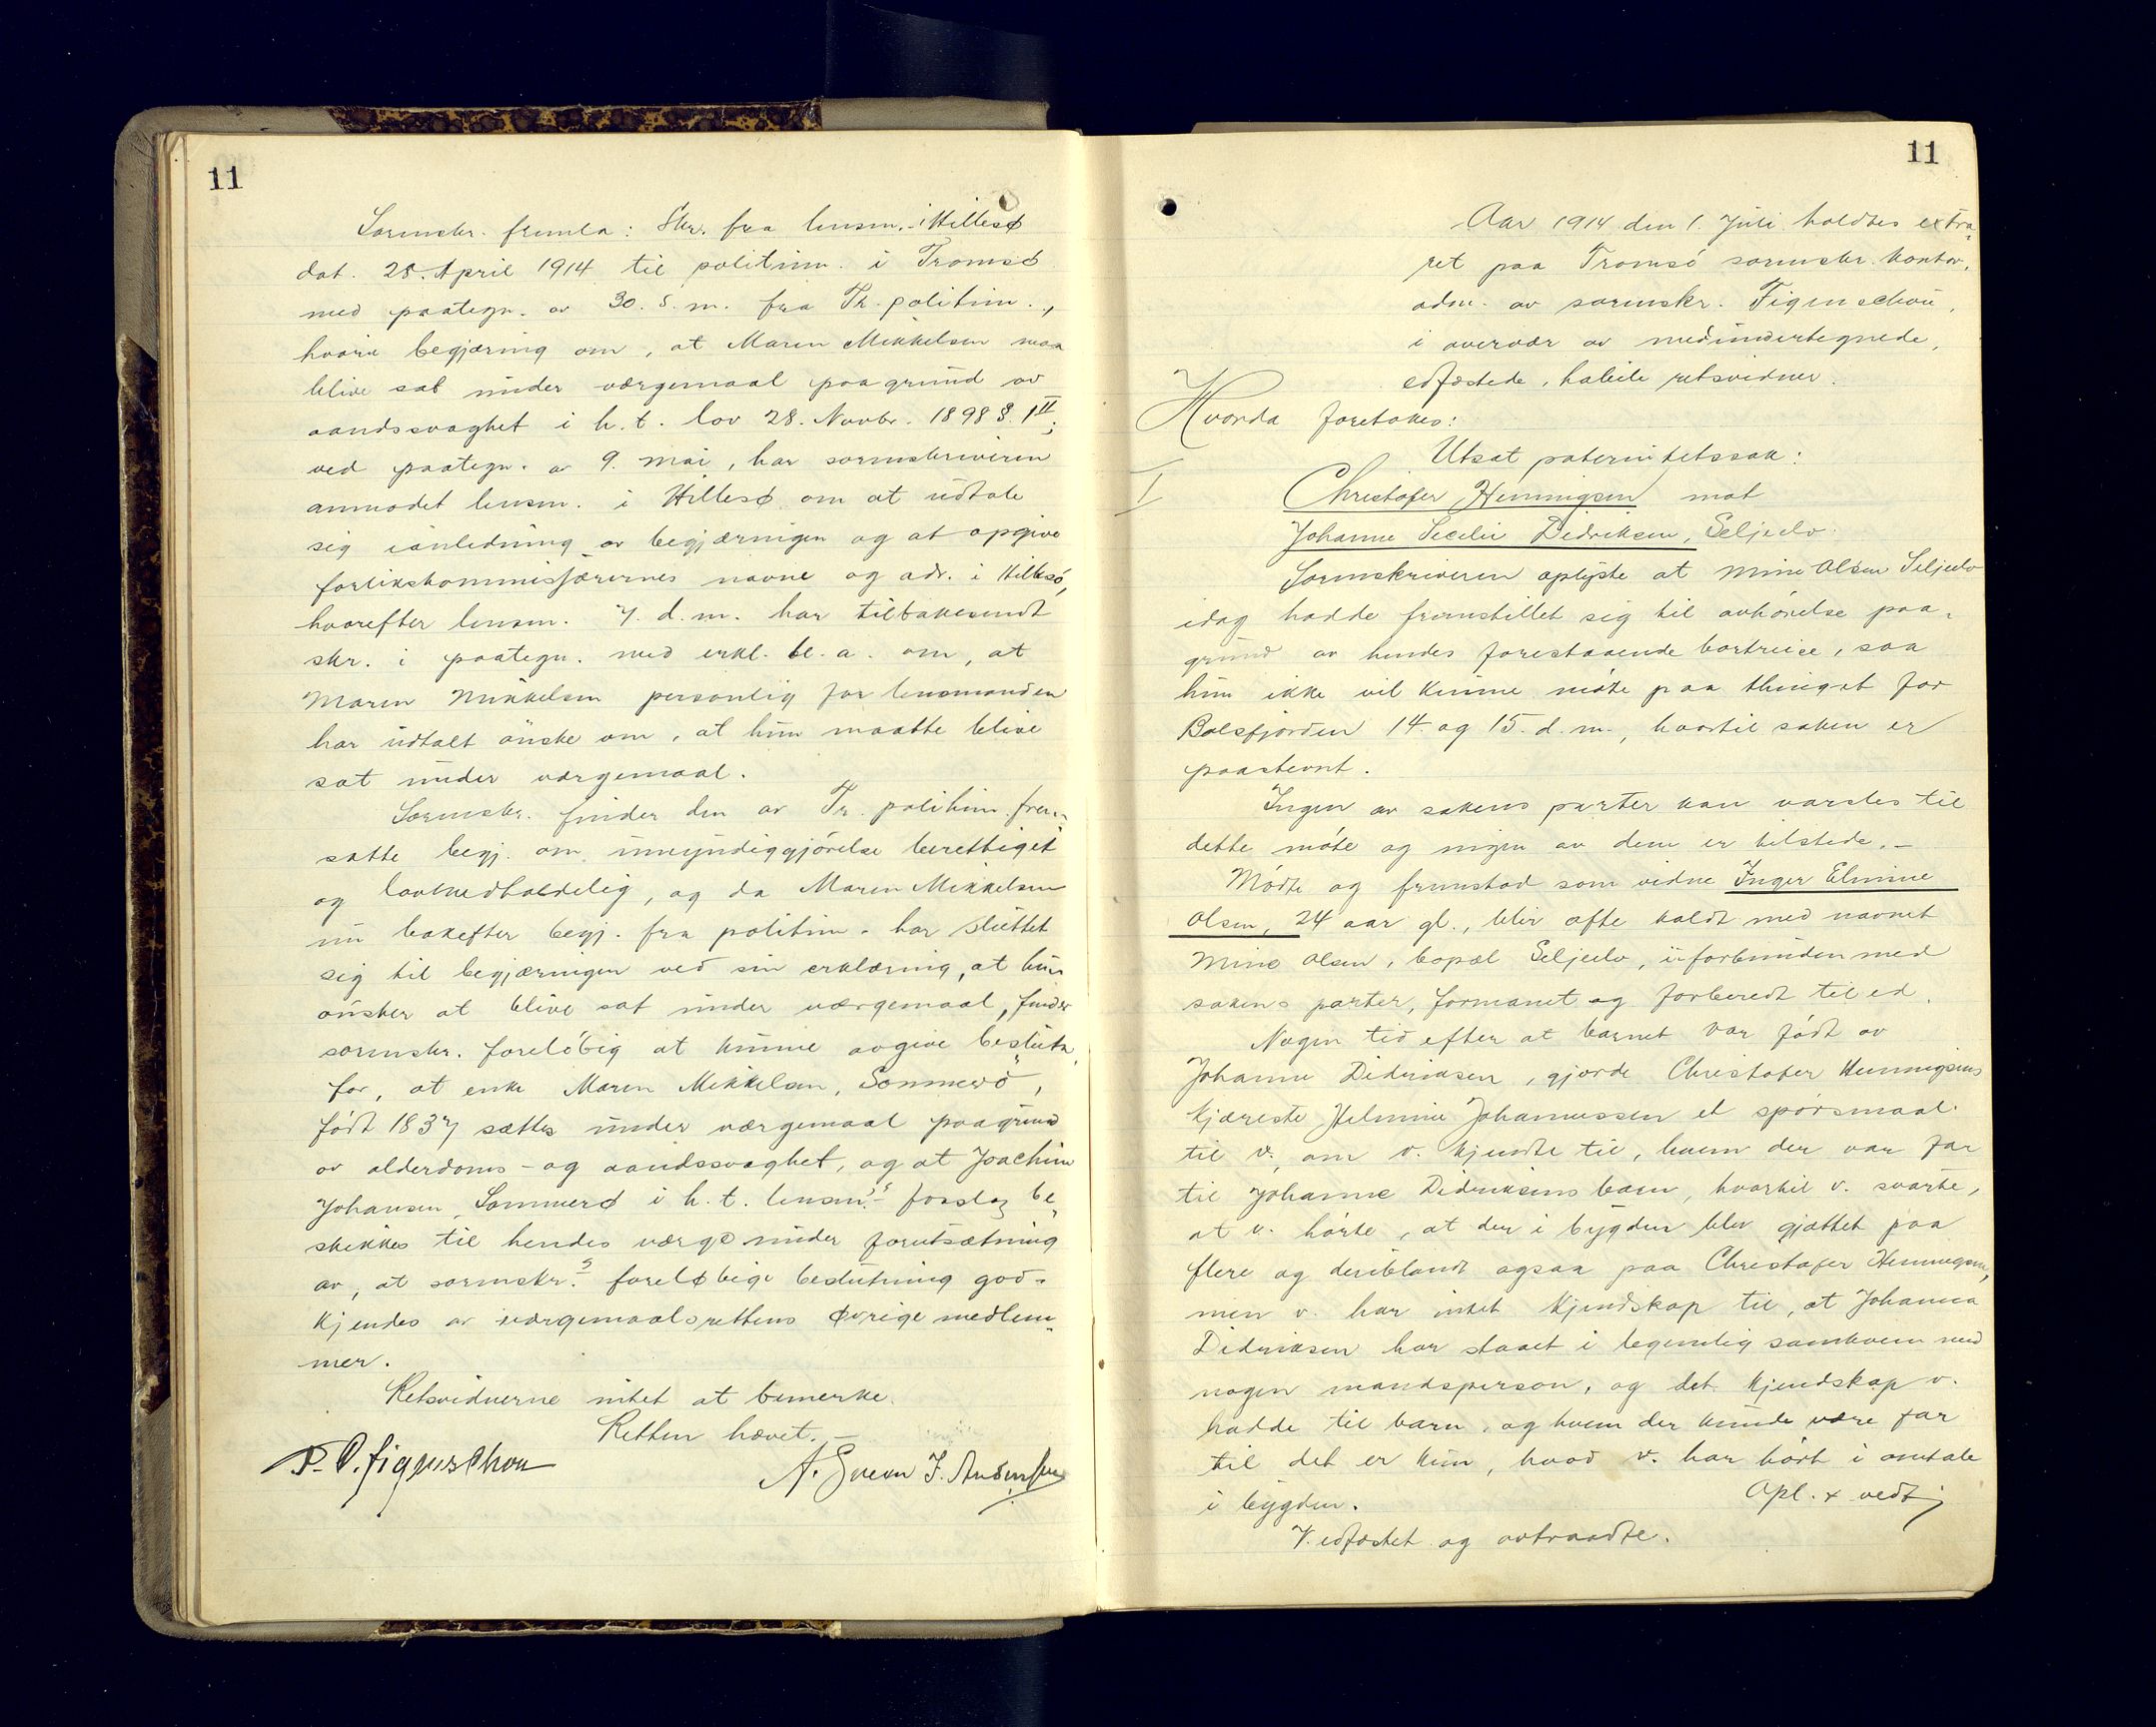 11
Sorenskr. fremla: Skr. fra lensm. i Hillesø
dat. 28. April 1914 til politim. i Tromsø
med paategn. av 30. s. m. fra Tr. politim.,
hvori begjæring om, at Maren Mikkelsen maa
blive sat under værgemaal paa grund av
aandssvaghet i h. t. lov 28. Novbr. 1898 § 1 II;
ved paategn. av 9. mai, har sorenskriveren
anmodet lensm. i Hillesø om at udtale
sig i anledning av begjæringen og at opgive
forlikskommissærernes navne og adr. i Hillesø,
hvorefter lensm. 7. d. m. har tilbakesendt
skr. i paategn. med erkl. bl. a. om, at
Maren Mikkelsen personlig for lensmanden
har udtalt ønske om, at hun maatte blive
sat under værgemaal.
Sorenskr. finder den av Tr. politim. frem-
satte begj. om umyndiggjørelse berettiget
og lovmedholdelig, og da Maren Mikkelsen
nu bakefter begj. fra politim. har sluttet
sig til begjæringen ved sin erklæring, at hun
ønsker at blive sat under værgemaal, finder
sorenskr. foreløbig at kunne avgive beslutn.
for, at enke Maren Mikkelsen, Sommerø,
født 1837 sættes under værgemaal paa grund
av alderdoms- og aandssvaghet, og at Joachim
Johansen, Sommerø i h. t. lensm.s forslag be-
skikkes til hendes værge under forutsætning
av, at sorenskr.s foreløbige beslutning god-
kjendes av værgemaalsrettens øvrige medlem-
mer.
Retsvidnerne intet at bemerke.
Retten hævet. -
P. O. Figenschou A. Green J. Andersen
11
Aar 1914 den 1. Juli holdtes extra-
ret paa Tromsø sorenskr. kontor,
adm. av sorenskr. Figenschou,
i overvær av medundertegnede,
edfæstede, habile retsvidner.
Hvorda foretokes:
Utsat paternitetssak:
I Christofer Henningsen mot
Johanne Secelie Didriksen, Seljeelv.
Sorenskriveren oplyste at Mine Olsen Seljeelv
idag hadde fremstillet sig til avhørelse paa-
grund av hendes forestaaende bortreise, saa
hun ikke vil kunne møte paa thinget for
Balsfjorden 14. og 15. d. m., hvortil saken er
paastevnt.
Ingen av sakens parter kan varsles til
dette møte og ingen av dem er tilstede. -
Mødte og fremstod som vidne Inger Elmine
Olsen, 24 aar gl., blir ofte kaldt med navnet
Mine Olsen, bopæl Seljeelv, uforbunden med
sakens parter, formanet og forberedt til ed.
Nogen tid efter at barnet var født av
Johanne Didriksen, gjorde Christofer Henningsens
kjæreste Helmine Johannessen et spørsmaal
til v., om v. kjendte til, hvem der var far
til Johanne Didriksens barn, hvortil v. svarte,
at v. hørte, at der i bygden blev gjættet paa
flere og deriblandt ogsaa paa Christofer Henningsen,
men v. har intet kjendskap til, at Johanna
Didriksen har staaet i legemlig samkvem med
nogen mandsperson, og det kjendskap v.
hadde til barn, og hvem der kunde være far
til det er kun, hvad v. har hørt i omtale
i bygden. Opl. & vedt.
V. edfæstet og avtraadte.